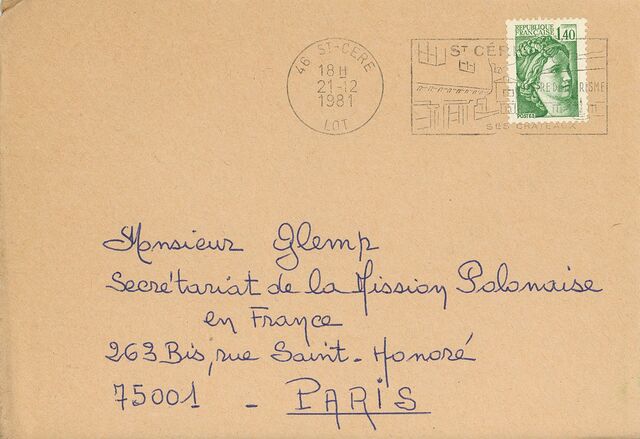 46 ST-CERE
18 H
21-12
1981
LOT
ST CÉRÉ
SES CHATEAUX
REPUBLIQUE
FRANÇAISE
1,40
POSTES
Monsieur Glemp
Secrétariat de la Mission Polonaise
en France
263 Bis, rue Saint-Honoré
75001 - PARIS